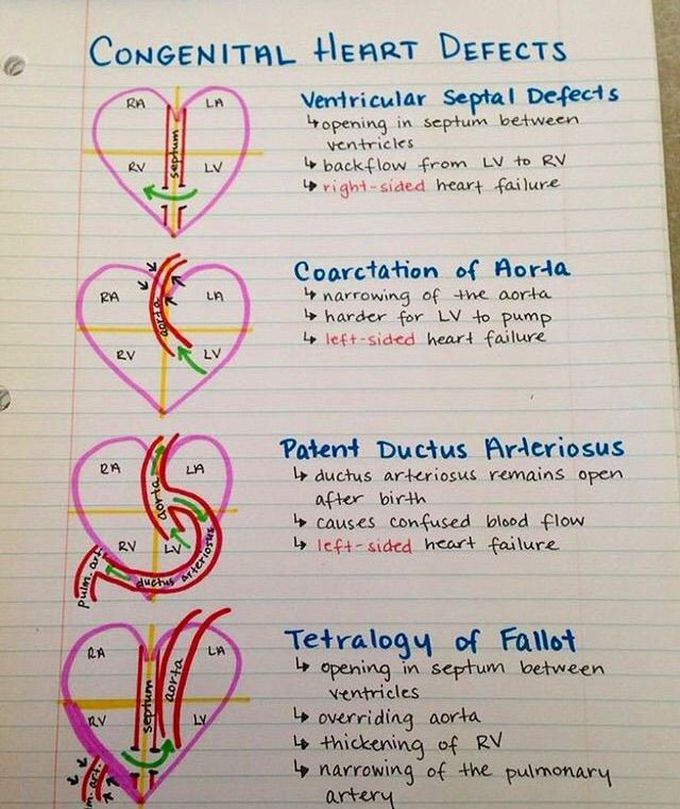 CONGENITAL HEART DEFECTS
RA LA
septum
RV LV
Ventricular Septal Defects
↳ opening in septum between
ventricles
↳ backflow from LV to RV
↳ right-sided heart failure
RA LA
aorta
RV LV
Coarctation of Aorta
↳ narrowing of the aorta
↳ harder for LV to pump
↳ left-sided heart failure
RA LA
aorta
RV LV
pulm. art.
ductus arteriosus
Patent Ductus Arteriosus
↳ ductus arteriosus remains open
after birth
↳ causes confused blood flow
↳ left-sided heart failure
RA LA
septum
aorta
RV LV
m. art.
Tetralogy of Fallot
↳ opening in septum between
ventricles
↳ overriding aorta
↳ thickening of RV
↳ narrowing of the pulmonary
artery